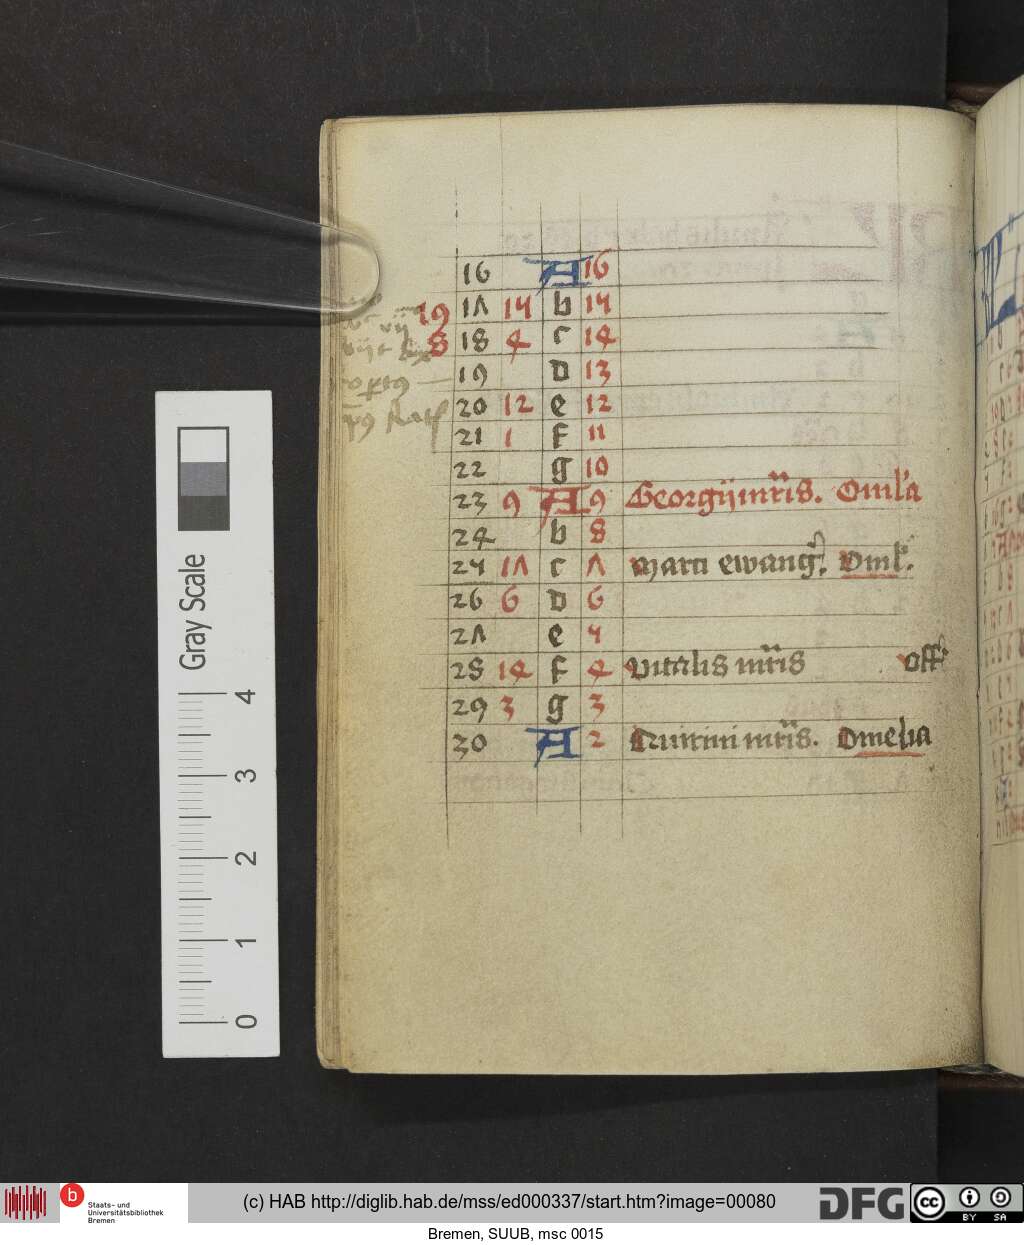 16 A 16
19 17 14 b 15
8 18 4 c 14
19 d 13
20 12 e 12
21 1 f 11
22 g 10
23 9 A 9 Georgij mr̄is. Oml'a
24 b 8
25 17 c 7 Marci ewang. Oml'.
26 6 d 6
27 e 5
28 14 f 4 Vitalis mr̄is off
29 3 g 3
30 A 2 Quirini mr̄is. Omelia
Gray Scale
4
3
2
1
0
b
Staats- und
Universitätsbibliothek
Bremen
(c) HAB http://diglib.hab.de/mss/ed000337/start.htm?image=00080
DFG
cc BY SA
Bremen, SUUB, msc 0015